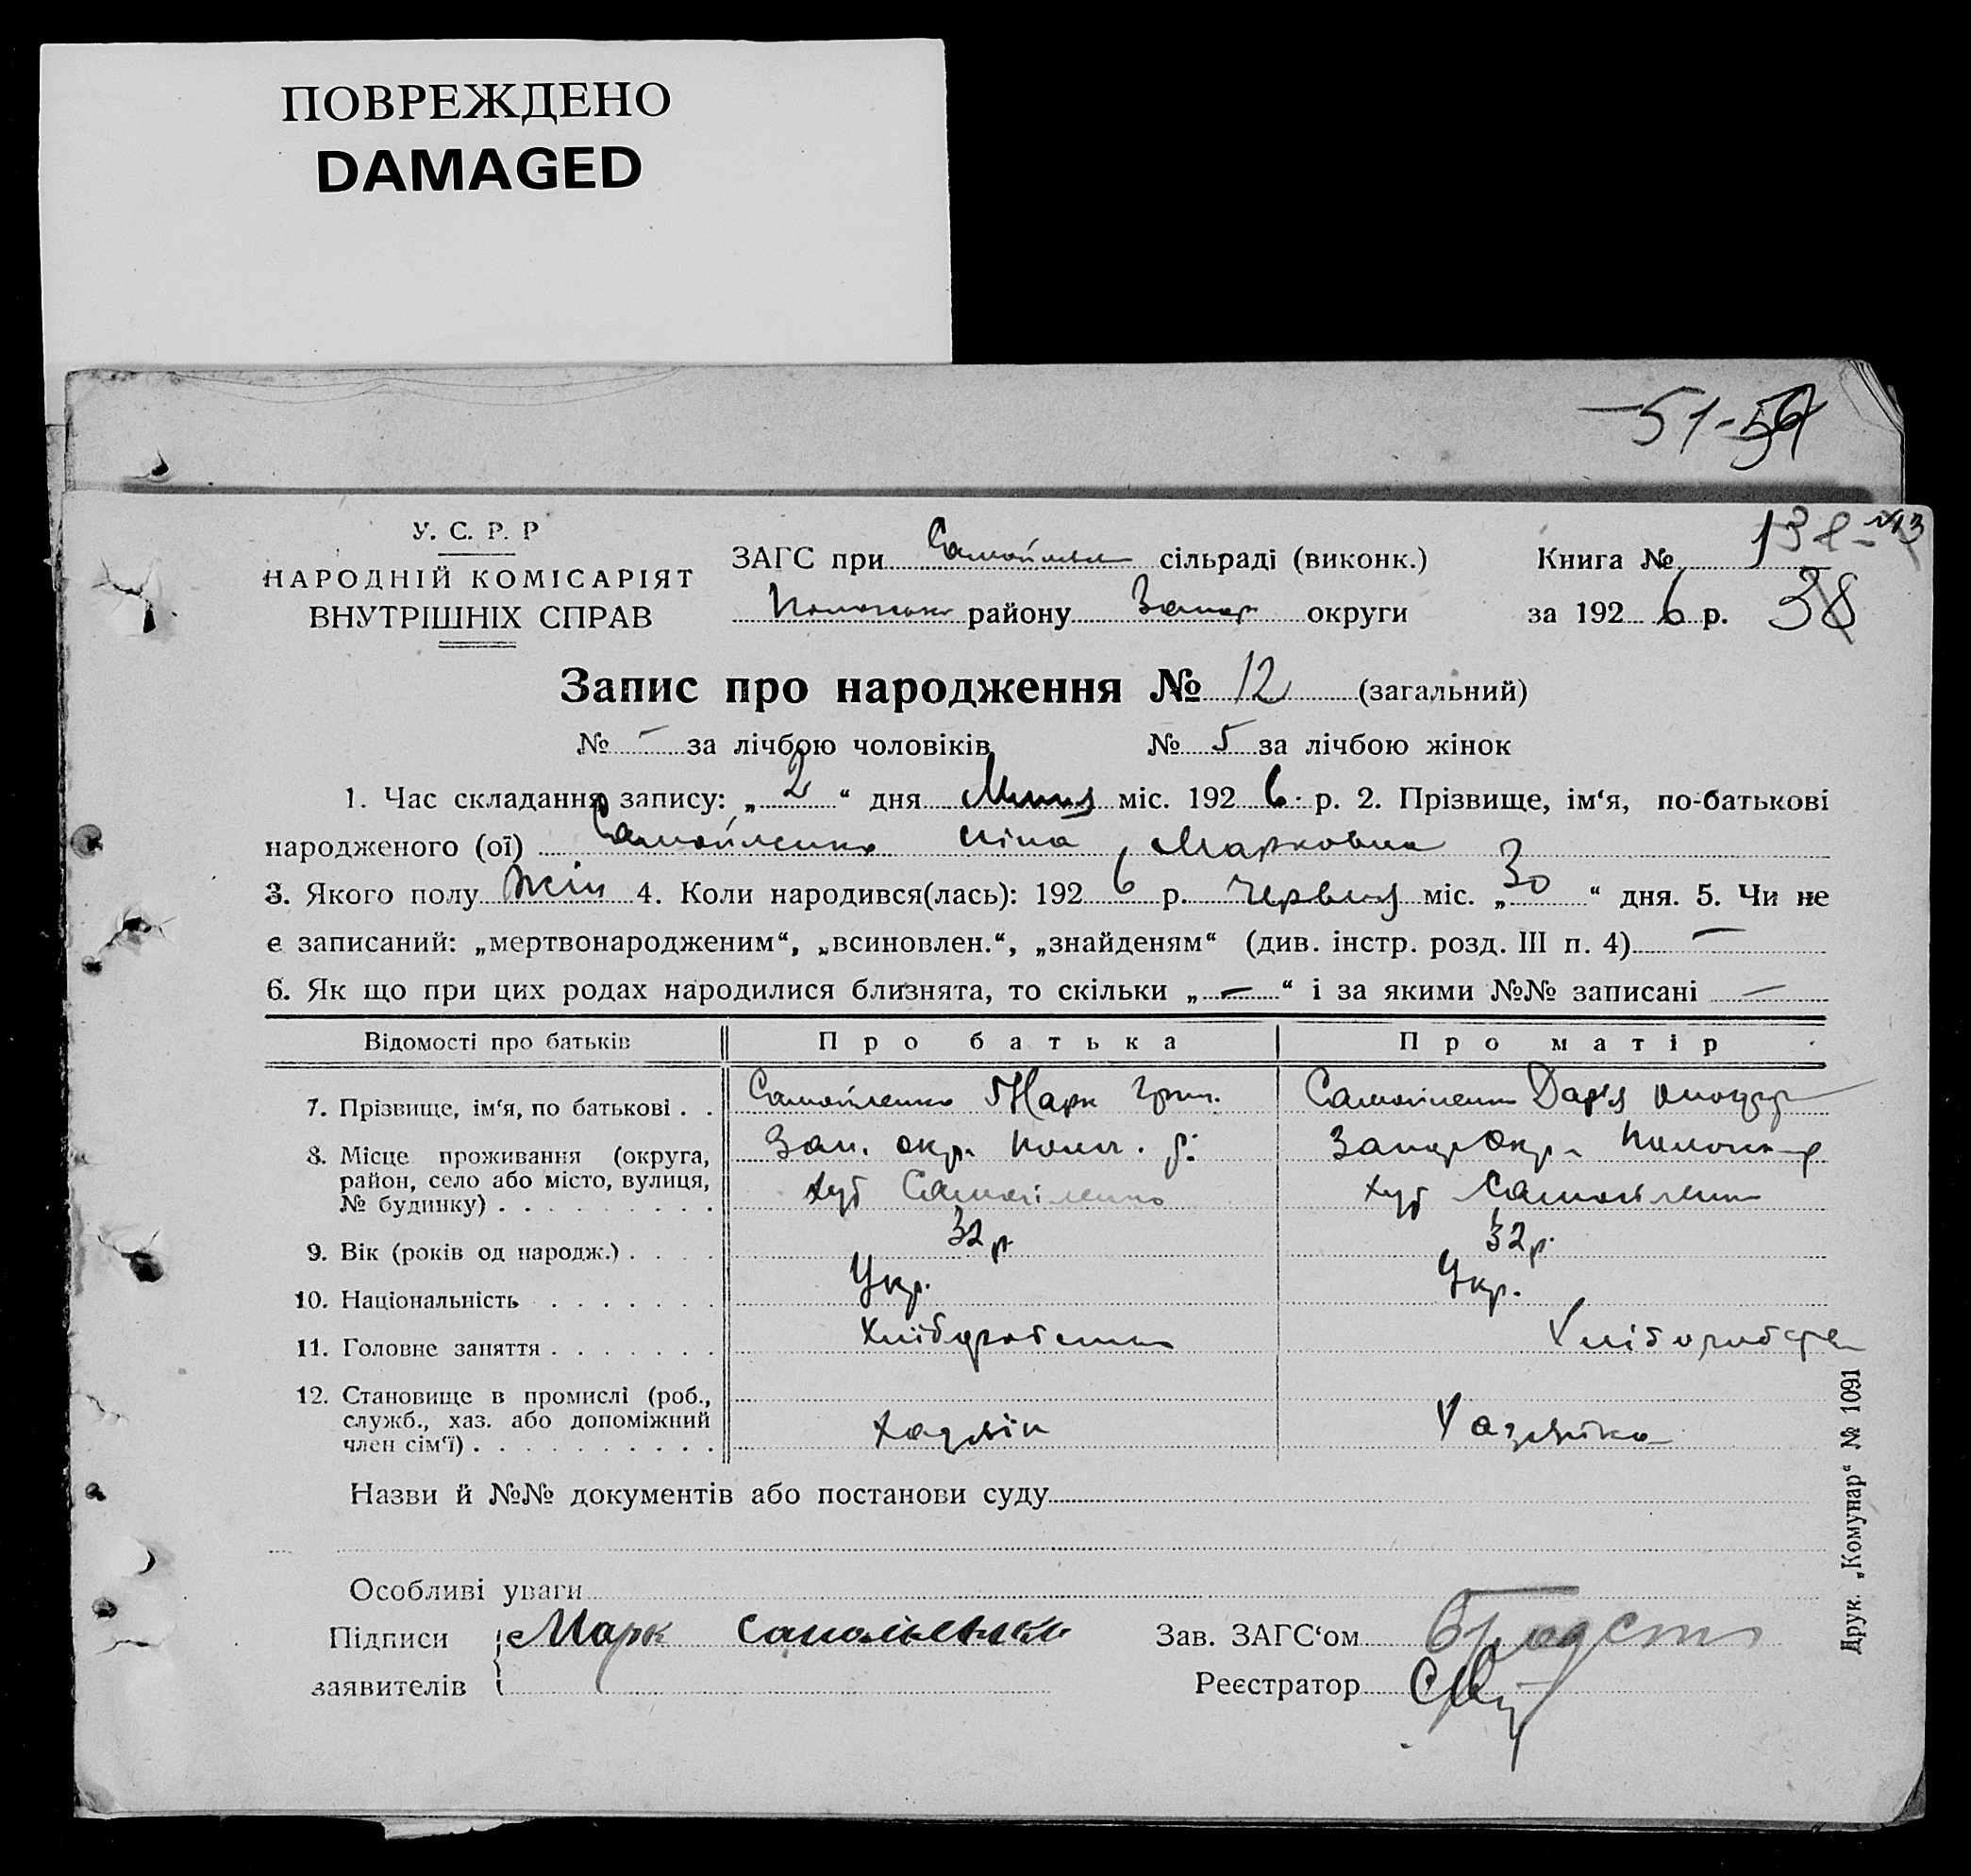 ПОВРЕЖДЕНО
DAMAGED
51-
У. С. Р. Р
НАРОДНІЙ КОМІСАРІЯТ
ВНУТРІШНІХ СПРАВ
ЗАГС при сільраді (виконк.)
району Запор округи
Книга № 138
за 1926 р. 38
Запис про народження № 12 (загальний)
№ - за лічбою чоловіків № 5 за лічбою жінок
1. Час складання запису: „2“ дня Липня міс. 1926 р. 2. Прізвище, ім‘я, по-батькові
народженого (ої) Самойленко Ніна Марковна
3. Якого полу жін 4. Коли народився(лась): 1926 р. червня міс. „30“ дня. 5. Чи не
є записаний: „мертвонародженим“, „всиновлен.“, „знайденям“ (див. інстр. розд. III п. 4) —
6. Як що при цих родах народилися близнята, то скільки „—“ і за якими №№ записані —
Відомості про батьків Про батька Про матір
7. Прізвище, ім‘я, по батькові . . Самойленко Марк Григ. Самойленко Дар'я
8. Місце проживання (округа,
район, село або місто, вулиця,
№ будинку) . . . . . . . . .
Зап. окр. р. Запор Окр.
хут Самойленко хут Самойленко
9. Вік (років од народж.) . . . . 32 р 32 р.
10. Національність . . . . . . . Укр. Укр.
11. Головне заняття . . . . . . . Хлібороб
12. Становище в промислі (роб.,
служб., хаз. або допоміжний
член сім‘ї) . . . . . . . . . .
Хазяїн Хазяйка
Назви й №№ документів або постанови суду
Особливі уваги
Підписи
заявителів
Марк Самойленко
Зав. ЗАГС‘ом
Реєстратор
Друк. „Комунар“ № 1091